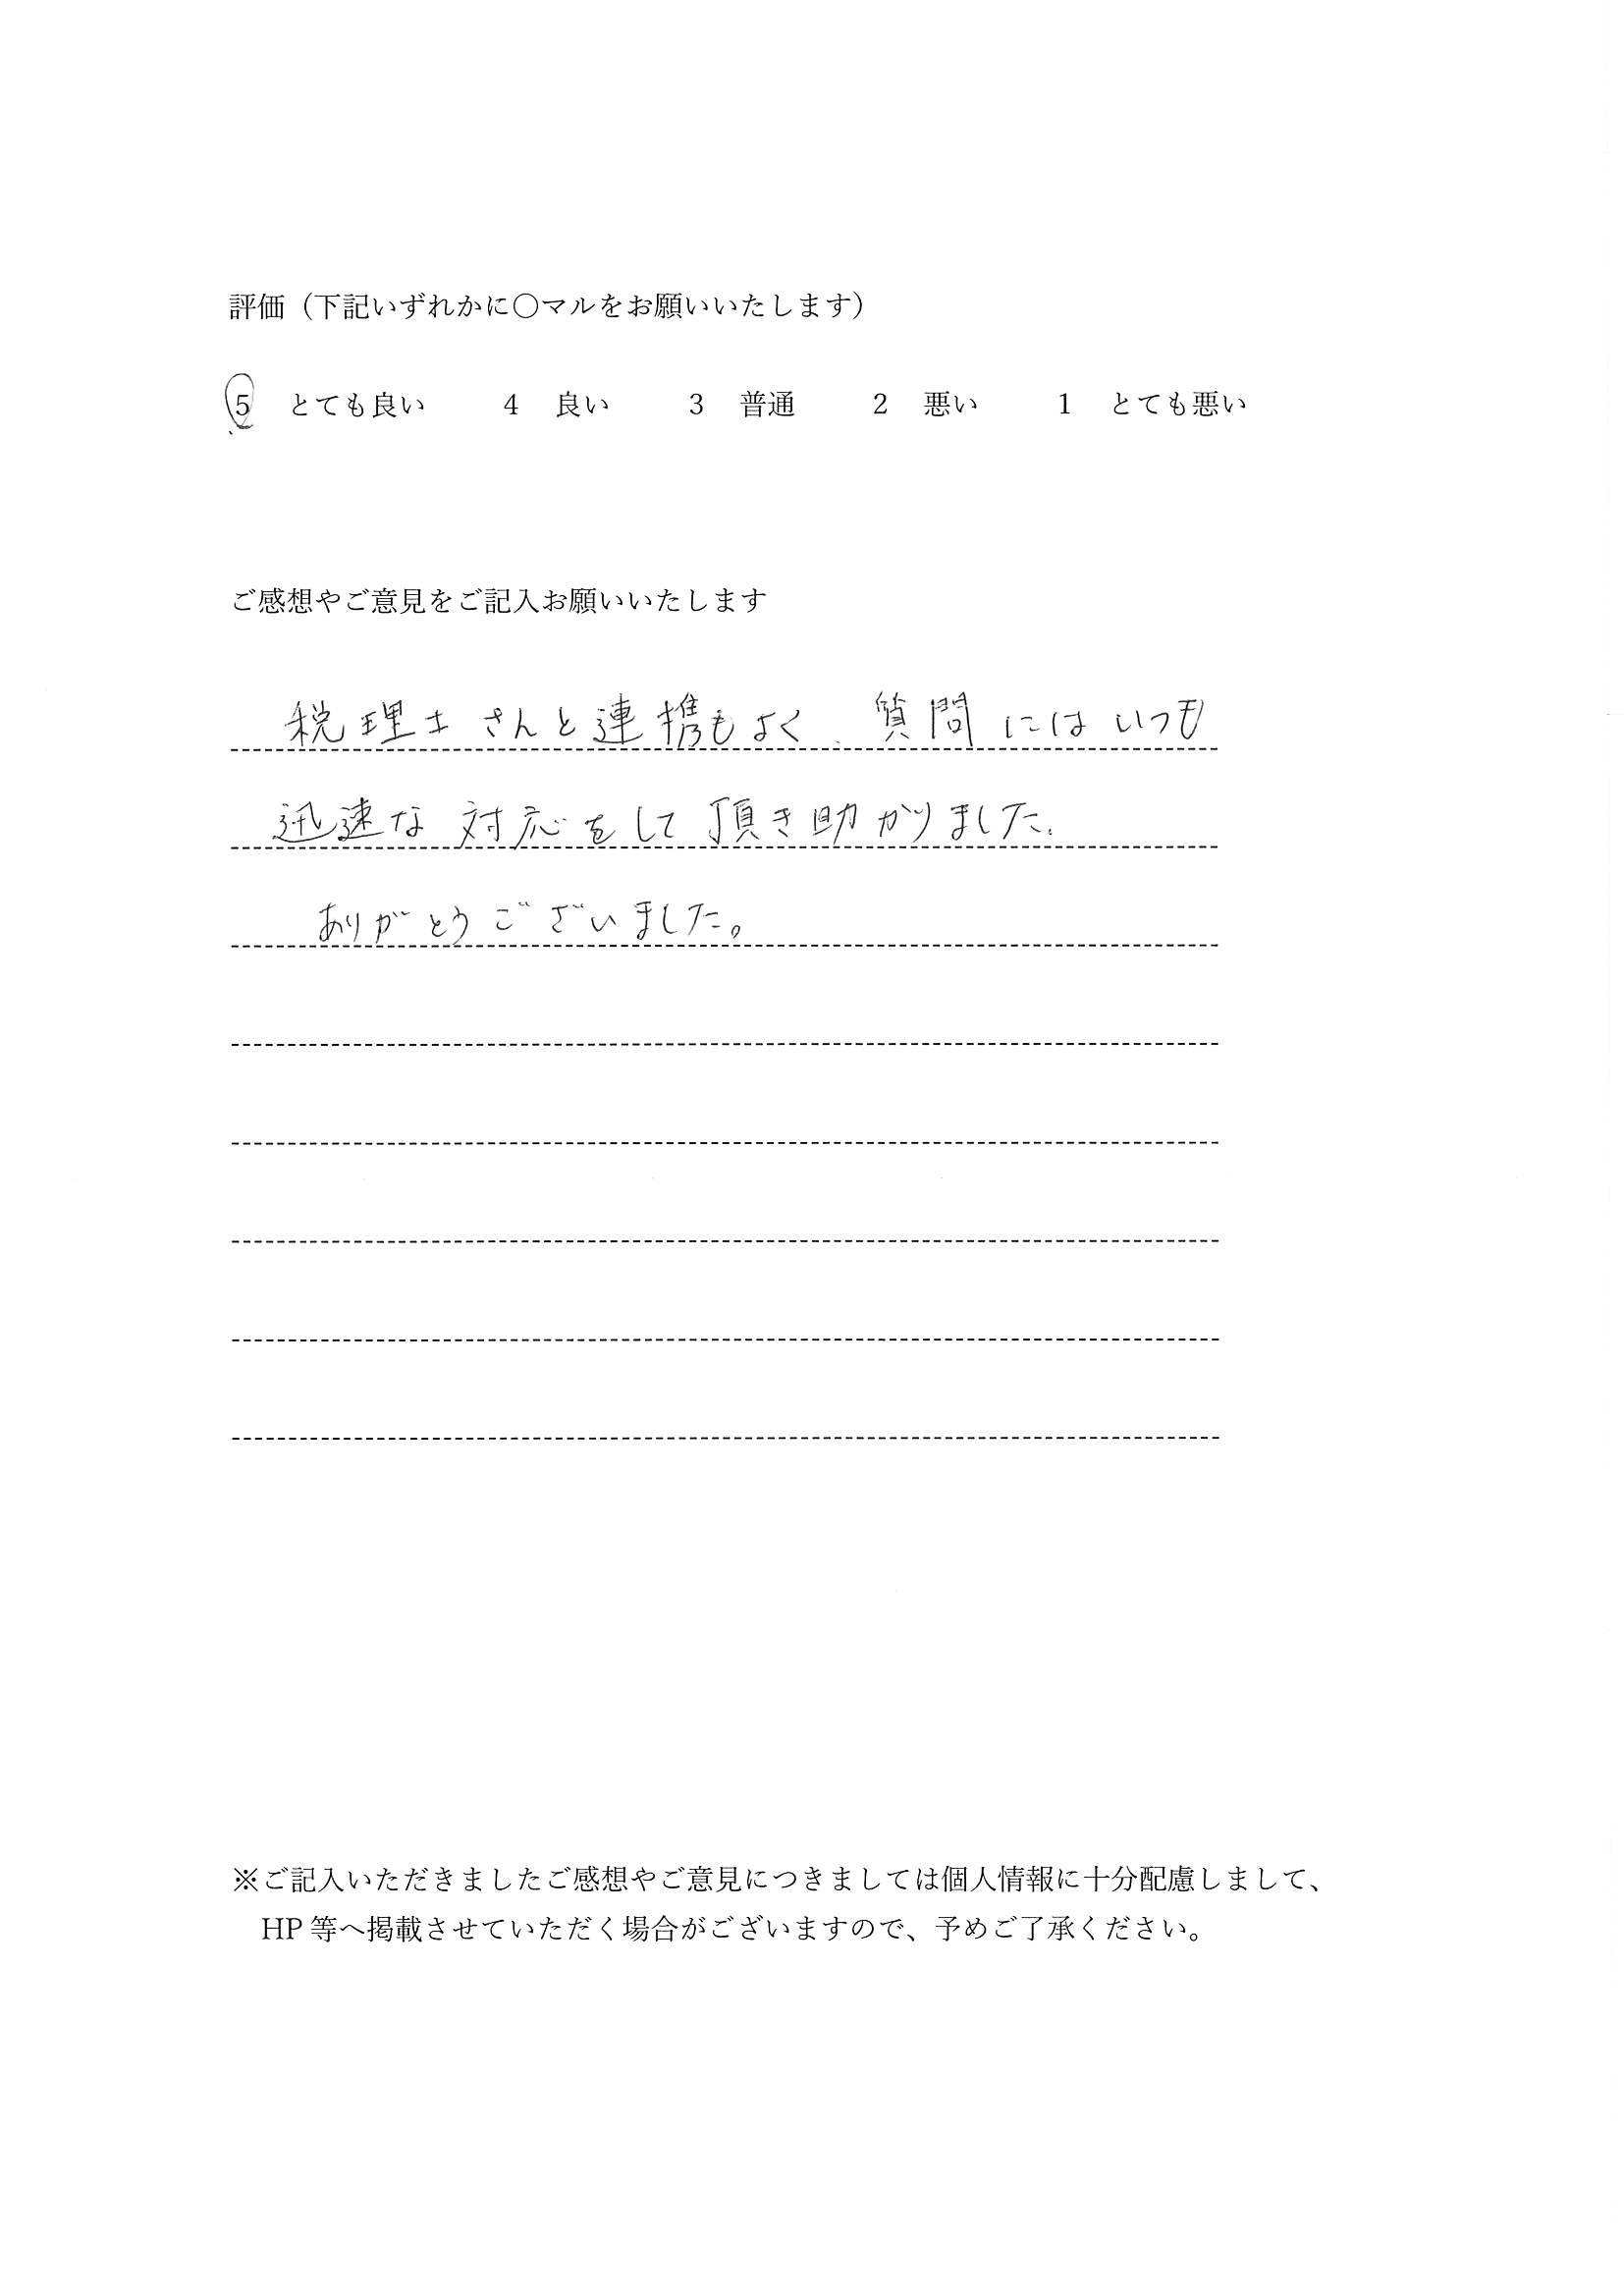 評価（下記いずれかに○マルをお願いいたします）
5　とても良い　4　良い　3　普通　2　悪い　1　とても悪い
ご感想やご意見をご記入お願いいたします
税理士さんと連携もよく、質問にはいつも
迅速な対応をして頂き助かりました。
ありがとうございました。
※ご記入いただきましたご感想やご意見につきましては個人情報に十分配慮しまして、
HP 等へ掲載させていただく場合がございますので、予めご了承ください。